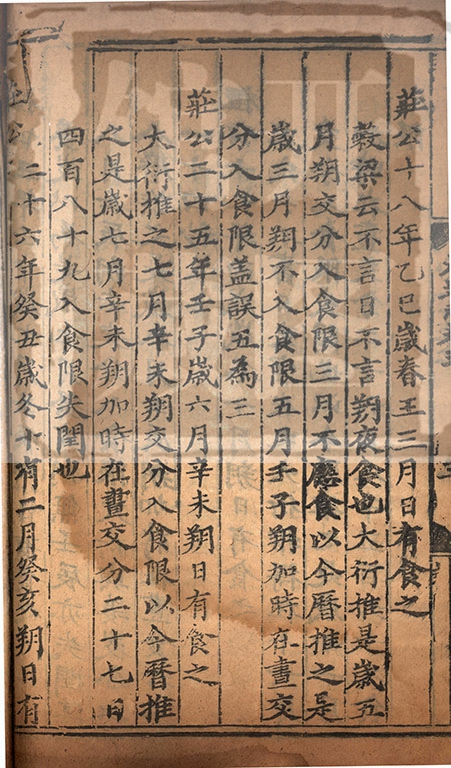 莊公十八年乙巳歲春王三月日有食之
穀梁云不言日不言朔夜食也大衍推是歲五
月朔交分入食限三月不應食以今曆推之是
歲三月朔不入食限五月壬子朔加時在晝交
分入食限盖誤五為三
莊公二十五年壬子歲六月辛未朔日有食之
大衍推之七月辛未朔交分入食限以今曆推
之是歲七月辛未朔加時在晝交分二十七日
四百八十九入食限失閏也
莊公二十六年癸丑歲冬十有二月癸亥朔日有